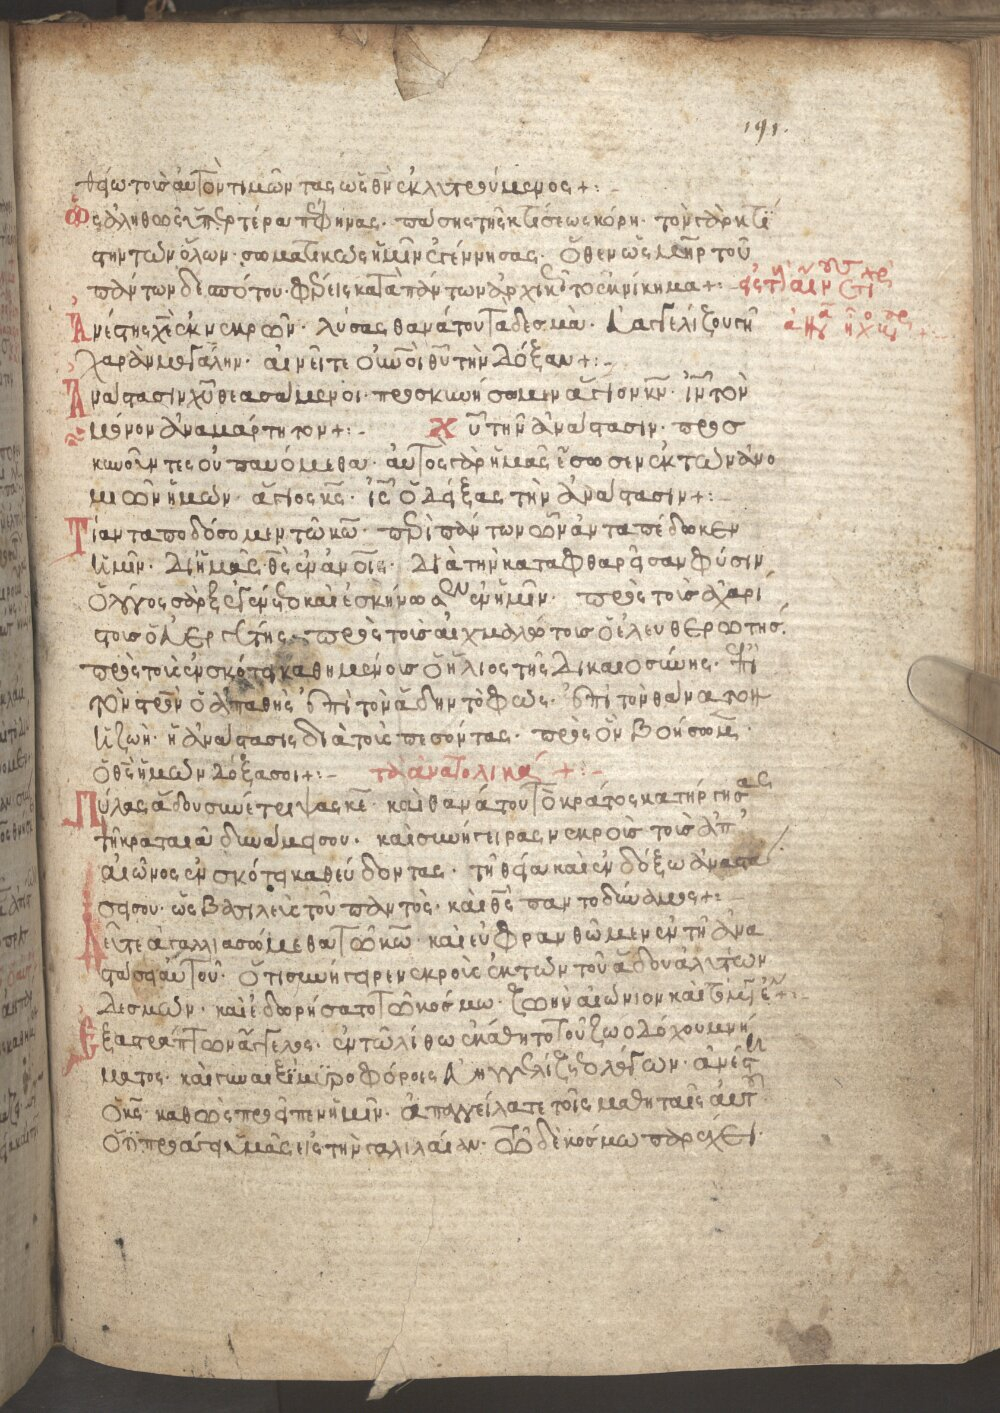 191.
θείω· τοὺς αὐτὸν τιμῶντας ὡς θν ἐκλυτρούμενος +:-
Σὲ ἀληθῶς ὑπερτέρα πέφηνας· πάσης τῆς κτίσεως κόρη· τὸν γὰρ κτί
στην τῶν ὅλων· σωματικῶς ἡμῖν ἐγέννησας· ὅθεν ὡς μηρ τοῦ
πάντων δεσπότου· φέρεις κατὰ πάντων ἀρχικῶς τὸ νίκημα +:-
Ἀνέστης χε ἐκ νεκρῶν· λύσας θανάτου τὰ δεσμὰ· εὐαγγελίζου γῆ
χαρὰν μεγάλην· αἰνεῖτε οὐνοὶ θυ τὴν δόξαν +:-
Ἀνάστασιν χυ θεασάμενοι· προσκυνήσωμεν ἅγιον κν· ιν τὸν
μόνον ἀναμάρτητον +:- Χυ τὴν ἀνάστασιν· προσ
κυνοῦντες οὐ παυόμεθα· αὐτὸς γὰρ ἡμᾶς ἔσωσεν ἐκ τῶν ἀνο
μιῶν ἡμῶν· ἅγιος κς· ις ὁ δείξας τὴν ἀνάστασιν +:-
Τί ἀνταποδώσομεν τῶ κω· περὶ πάντων ὧν ἀνταπέδωκεν
ἡμῖν· δι' ἡμᾶς θς ἐν ἀνοις· διὰ τὴν καταφθαρεῖσαν φύσιν
ὁ λόγος σὰρξ ἐγένετο καὶ ἐσκήνωσεν ἐν ἡμῖν· πρὸς τοὺς ἀχαρί
στους ὁ εὐεργέτης· πρὸς τοὺς αἰχμαλώτους ὁ ἐλευθερωτής·
πρὸς τοὺς ἐν σκότει καθημένους ὁ ἥλιος τῆς δικαιοσύνης· ἐπὶ
τὸν στρον ὁ ἀπαθὴς· ἐπὶ τὸν ἅδην τὸ φῶς· ἐπὶ τὸν θάνατον
ἡ ζωὴ· ἡ ἀνάστασις διὰ τοὺς πεσόντας· πρὸς ὃν βοήσωμεν·
ὁ θς ἡμῶν δόξα σοι +:- τὰ ἀνατολικά +:-
Πύλας ἅδου συνέτριψας κε· καὶ θανάτου τὸ κράτος κατήργησας
τῆ κραταιᾶ δυνάμει σου· καὶ συνήγειρας νεκροὺς τοὺς ἀπ'
αἰῶνος ἐν σκότει καθεύδοντας· τῆ θεία καὶ ἐνδόξω ἀναστά
σει σου· ὡς βασιλεὺς τοῦ παντὸς· καὶ θς παντοδύναμος +:-
Δεῦτε ἀγαλλιασώμεθα τῶ κω· καὶ εὐφρανθῶμεν ἐν τῆ ἀνα
στάσει αὐτοῦ· ὅτι συνήγειρε νεκροὺς ἐκ τῶν τοῦ ἅδου ἀλύτων
δεσμῶν· καὶ ἐδωρήσατο τῶ κόσμω· ζωὴν αἰώνιον καὶ τὸ μέγα ἔλεος +:-
Ἐξαστράπτων ἄγγελος· ἐν τῶ λίθω ἐκάθητο τοῦ ζωοδόχου μνή
ματος· καὶ γυναιξὶ μυροφόροις εὐηγγελίζετο λέγων· ἀνέστη
ὁ κς· καθὼς προεῖπεν ὑμῖν· ἀπαγγείλατε τοῖς μαθηταῖς αὐτοῦ·
ὅτι προάγει ὑμᾶς εἰς τὴν γαλιλαίαν· τῶ δὲ κόσμω παρέχει·